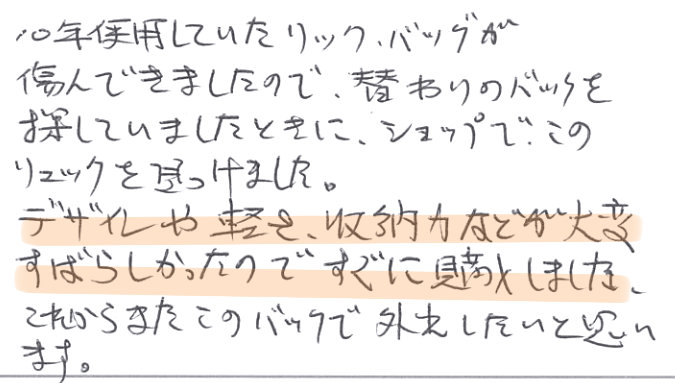 10年使用していたリック、バッグが
傷んできましたので、替わりのバックを
探していましたときに、ショップで、この
リュックを見つけました。
デザインや軽さ、収納力などが大変
すばらしかったのですぐに購入しました、
これからまたこのバックで外出したいと思い
ます。